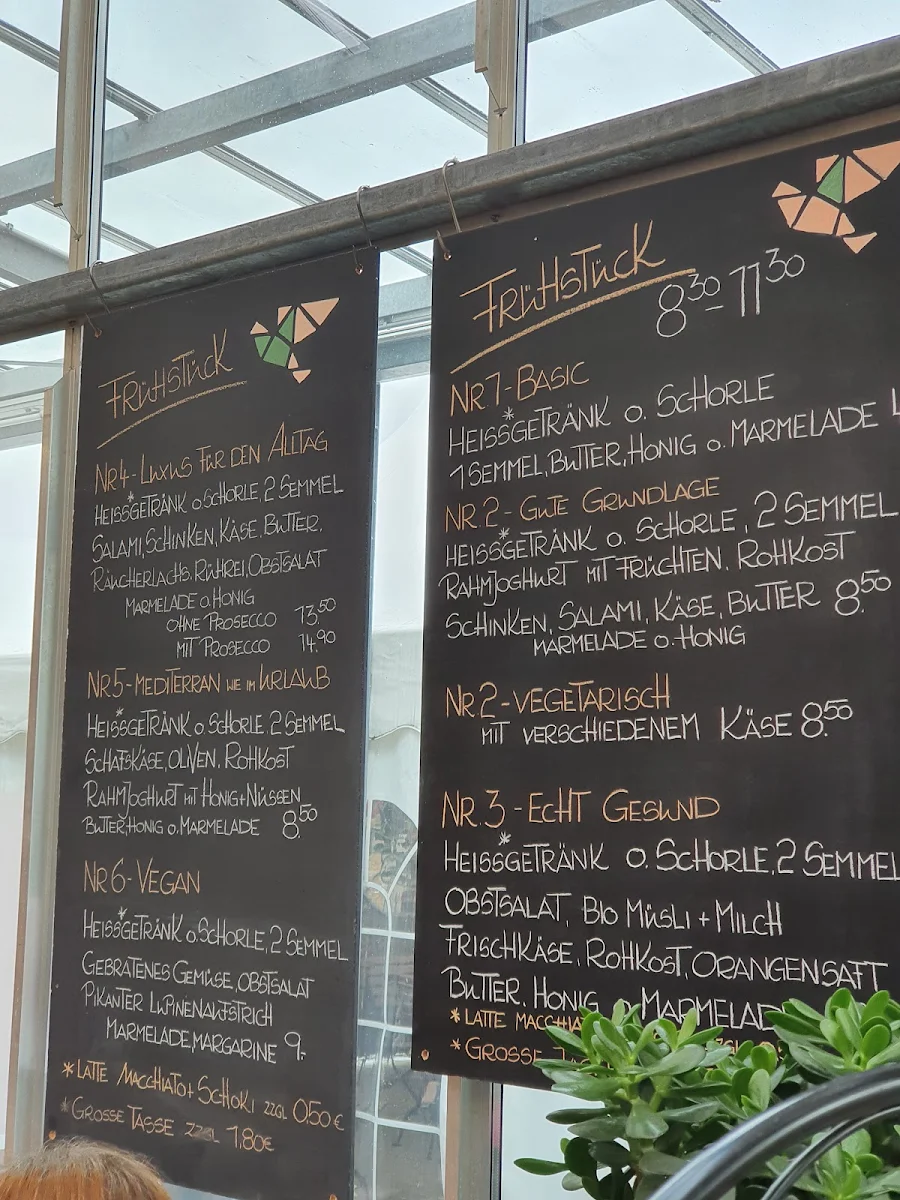 Frühstück
Nr 4 - Luxus für den Alltag
Heiss*getränk o. Schorle, 2 Semmel
Salami, Schinken, Käse, Butter,
Räucherlachs, Rührei, Obstsalat
Marmelade o. Honig
ohne Prosecco 13,50
mit Prosecco 14,90
Nr 5 - Mediterran wie im Urlaub
Heiss*getränk o. Schorle, 2 Semmel
Schafskäse, Oliven, Rohkost
Rahmjoghurt mit Honig + Nüssen
Butter, Honig o. Marmelade 8,50
Nr 6 - Vegan
Heiss*getränk o. Schorle, 2 Semmel
Gebratenes Gemüse, Obstsalat
Pikanter Lupinenaufstrich
Marmelade, Margarine 9,-
*Latte Macchiato + Schoki zzgl 0,50 €
*Grosse Tasse zzgl 1.80€
Frühstück
8 30 - 11 30
Nr 1 - Basic
Heiss*getränk o. Schorle
1 Semmel, Butter, Honig o. Marmelade
Nr. 2 - Gute Grundlage
Heiss*getränk o. Schorle, 2 Semmel
Rahmjoghurt mit Früchten, Rohkost
Schinken, Salami, Käse, Butter 8,50
Marmelade o. Honig
Nr 2 - vegetarisch
mit verschiedenem Käse 8,50
Nr. 3 - Echt Gesund
Heiss*getränk o. Schorle, 2 Semmel
Obstsalat, Bio Müsli + Milch
Frischkäse, Rohkost, Orangensaft
Butter, Honig o Marmelad
*Latte Macchia
*Grosse